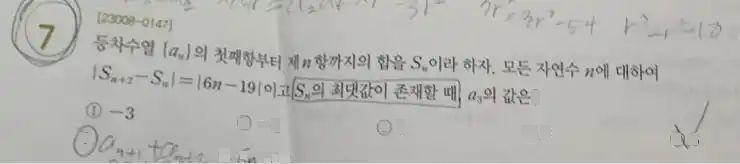 3r³-54
7
[23008-0147]
등차수열 {aₙ}의 첫째항부터 제n항까지의 합을 Sₙ이라 하자. 모든 자연수 n에 대하여
|Sₙ₊₂-Sₙ|=|6n-19|이고 Sₙ의 최댓값이 존재할 때, a₃의 값은
① -3
aₙ₊₁+aₙ₊₂